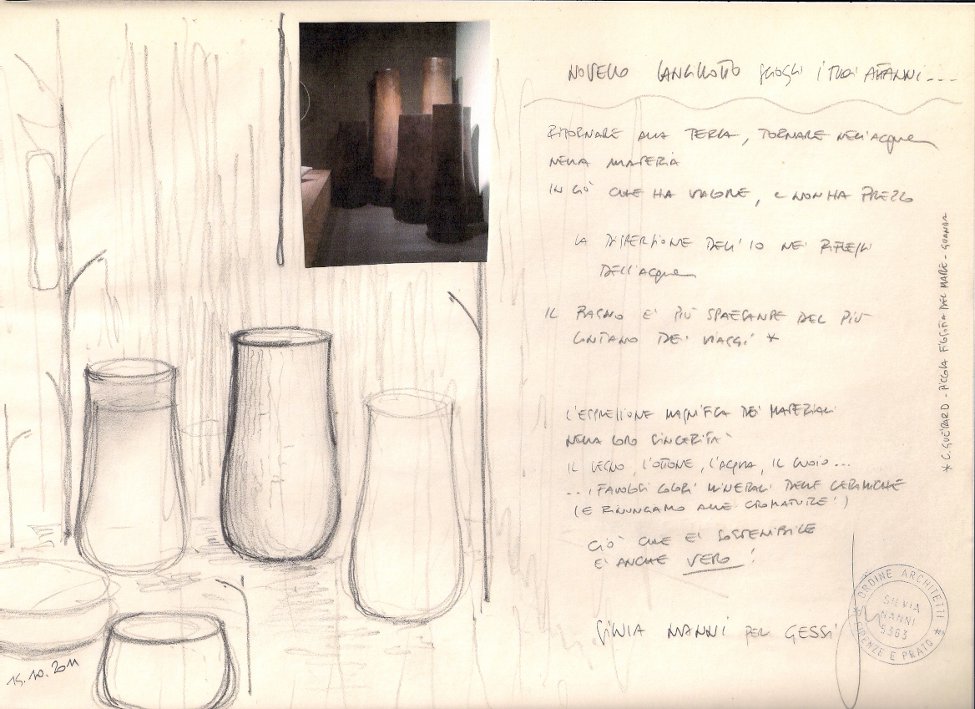 NOVELLO LANCILLOTTO SCIOGLI I TUOI AFFANNI...
RITORNARE ALLA TERRA, TORNARE NELL'ACQUA
NELLA MATERIA
IN CIÒ CHE HA VALORE, E NON HA PREZZO
LA DISPERSIONE DELL'IO NEI RIFLESSI
DELL'ACQUA
IL BAGNO E' PIÙ SPAESANTE DEL PIÙ
LONTANO DEI VIAGGI *
L'ESPRESSIONE MAGNIFICA DEI MATERIALI
NELLA LORO SINCERITA'
IL LEGNO, L'OTTONE, L'ACQUA, IL CUOIO...
... I FAVOLOSI COLORI MINERALI DELLE CERAMICHE
(E RINUNCIAMO ALLE CROMATURE!)
CIÒ CHE E' SOSTENIBILE
E' ANCHE VERO!
SILVIA NANNI PER GESSI
* C. GUÉRARD - PICCOLA FILOSOFIA DEL MARE - GUANDA
ORDINE ARCHITETTI
SILVIA
NANNI
5363
FIRENZE E PRATO
15.10.2011